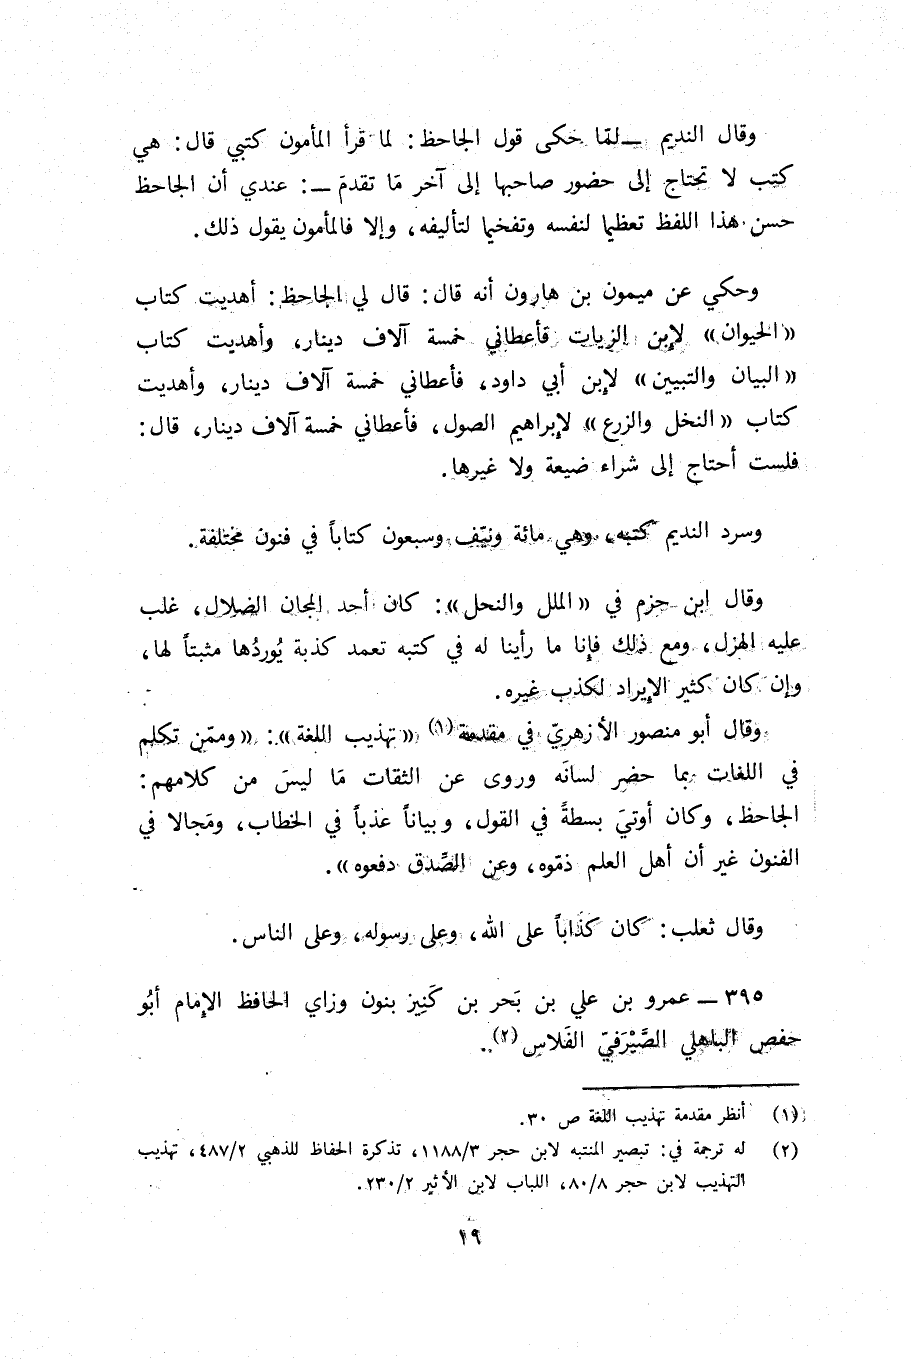 وقال النديم ــ لمّا حكى قول الجاحظ: لما قرأ المأمون كتبي قال: هي
كتب لا تحتاج إلى حضور صاحبها إلى آخر مَا تقدمَ ــ: عندي أن الجاحظ
حسن هذا اللفظ تعظيما لنفسه وتفخيما لتأليفه، وإلا فالمأمون يقول ذلك.
وحكي عن ميمون بن هارون أنه قال: قال لي الجاحظ: أهديت كتاب
«الحيوان» لإبن الزيات فأعطاني خمسة آلاف دينار، وأهديت كتاب
«البيان والتبيين» لإبن أبي داود، فأعطاني خمسة آلاف دينار، وأهديت
كتاب «النخل والزرع» لإبراهيم الصول، فأعطاني خمسة آلاف دينار، قال:
فلست أحتاج إلى شراء ضيعة ولا غيرها.
وسرد النديم كتبه، وهي مائة ونيّف وسبعون كتاباً في فنون مختلفة.
وقال ابن حزم في «الملل والنحل»: كان أحد المجان الضلال، غلب
عليه الهزل، ومع ذلك فإنا ما رأينا له في كتبه تعمد كذبة يُوردُها مثبتاً لها،
وإن كان كثير الإيراد لكذب غيره.
وقال أبو منصور الأزهريّ في مقدمة (١) «تهذيب اللغة»: «وممّن تكلم
في اللغات بما حضر لسانَه وروى عن الثقات مَا ليسَ من كلامهم:
الجاحظ، وكان أوتيَ بسطةً في القول، وبياناً عذباً في الخطاب، ومَجالا في
الفنون غير أن أهل العلم ذمّوه، وعن الصِّدق دفعوه».
وقال ثعلب: كان كذَّاباً على الله، وعلى رسوله، وعلى الناس.
٣٩٥ ــ عمرو بن علي بن بَحر بن كَنِيز بنون وزاي الحافظ الإمام أبُو
حفص الباهلي الصَّيْرَفيّ الفَلاس (٢).
(١) أنظر مقدمة تهذيب اللغة ص ٣٠.
(٢) له ترجمة في: تبصير المنتبه لابن حجر ١١٨٨/٣، تذكرة الحفاظ للذهبي ٤٨٧/٢، تهذيب
التهذيب لابن حجر ٨٠/٨، اللباب لابن الأثير ٢٣٠/٢.
١٩